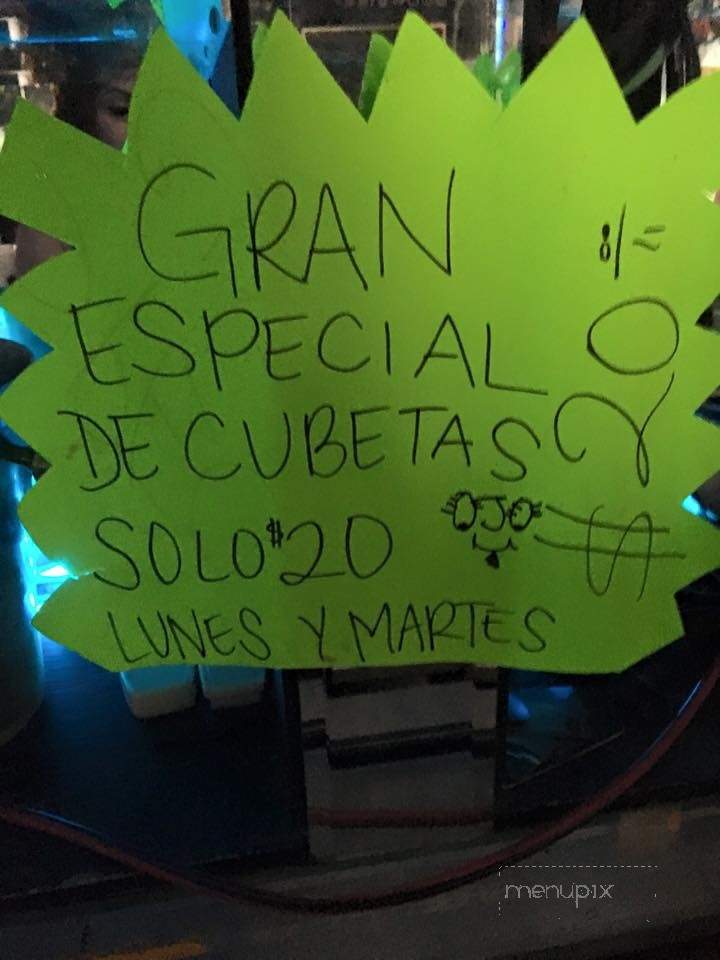 GRAN
ESPECIAL
DE CUBETAS
SOLO $20
OJO
LUNES Y MARTES
menupix